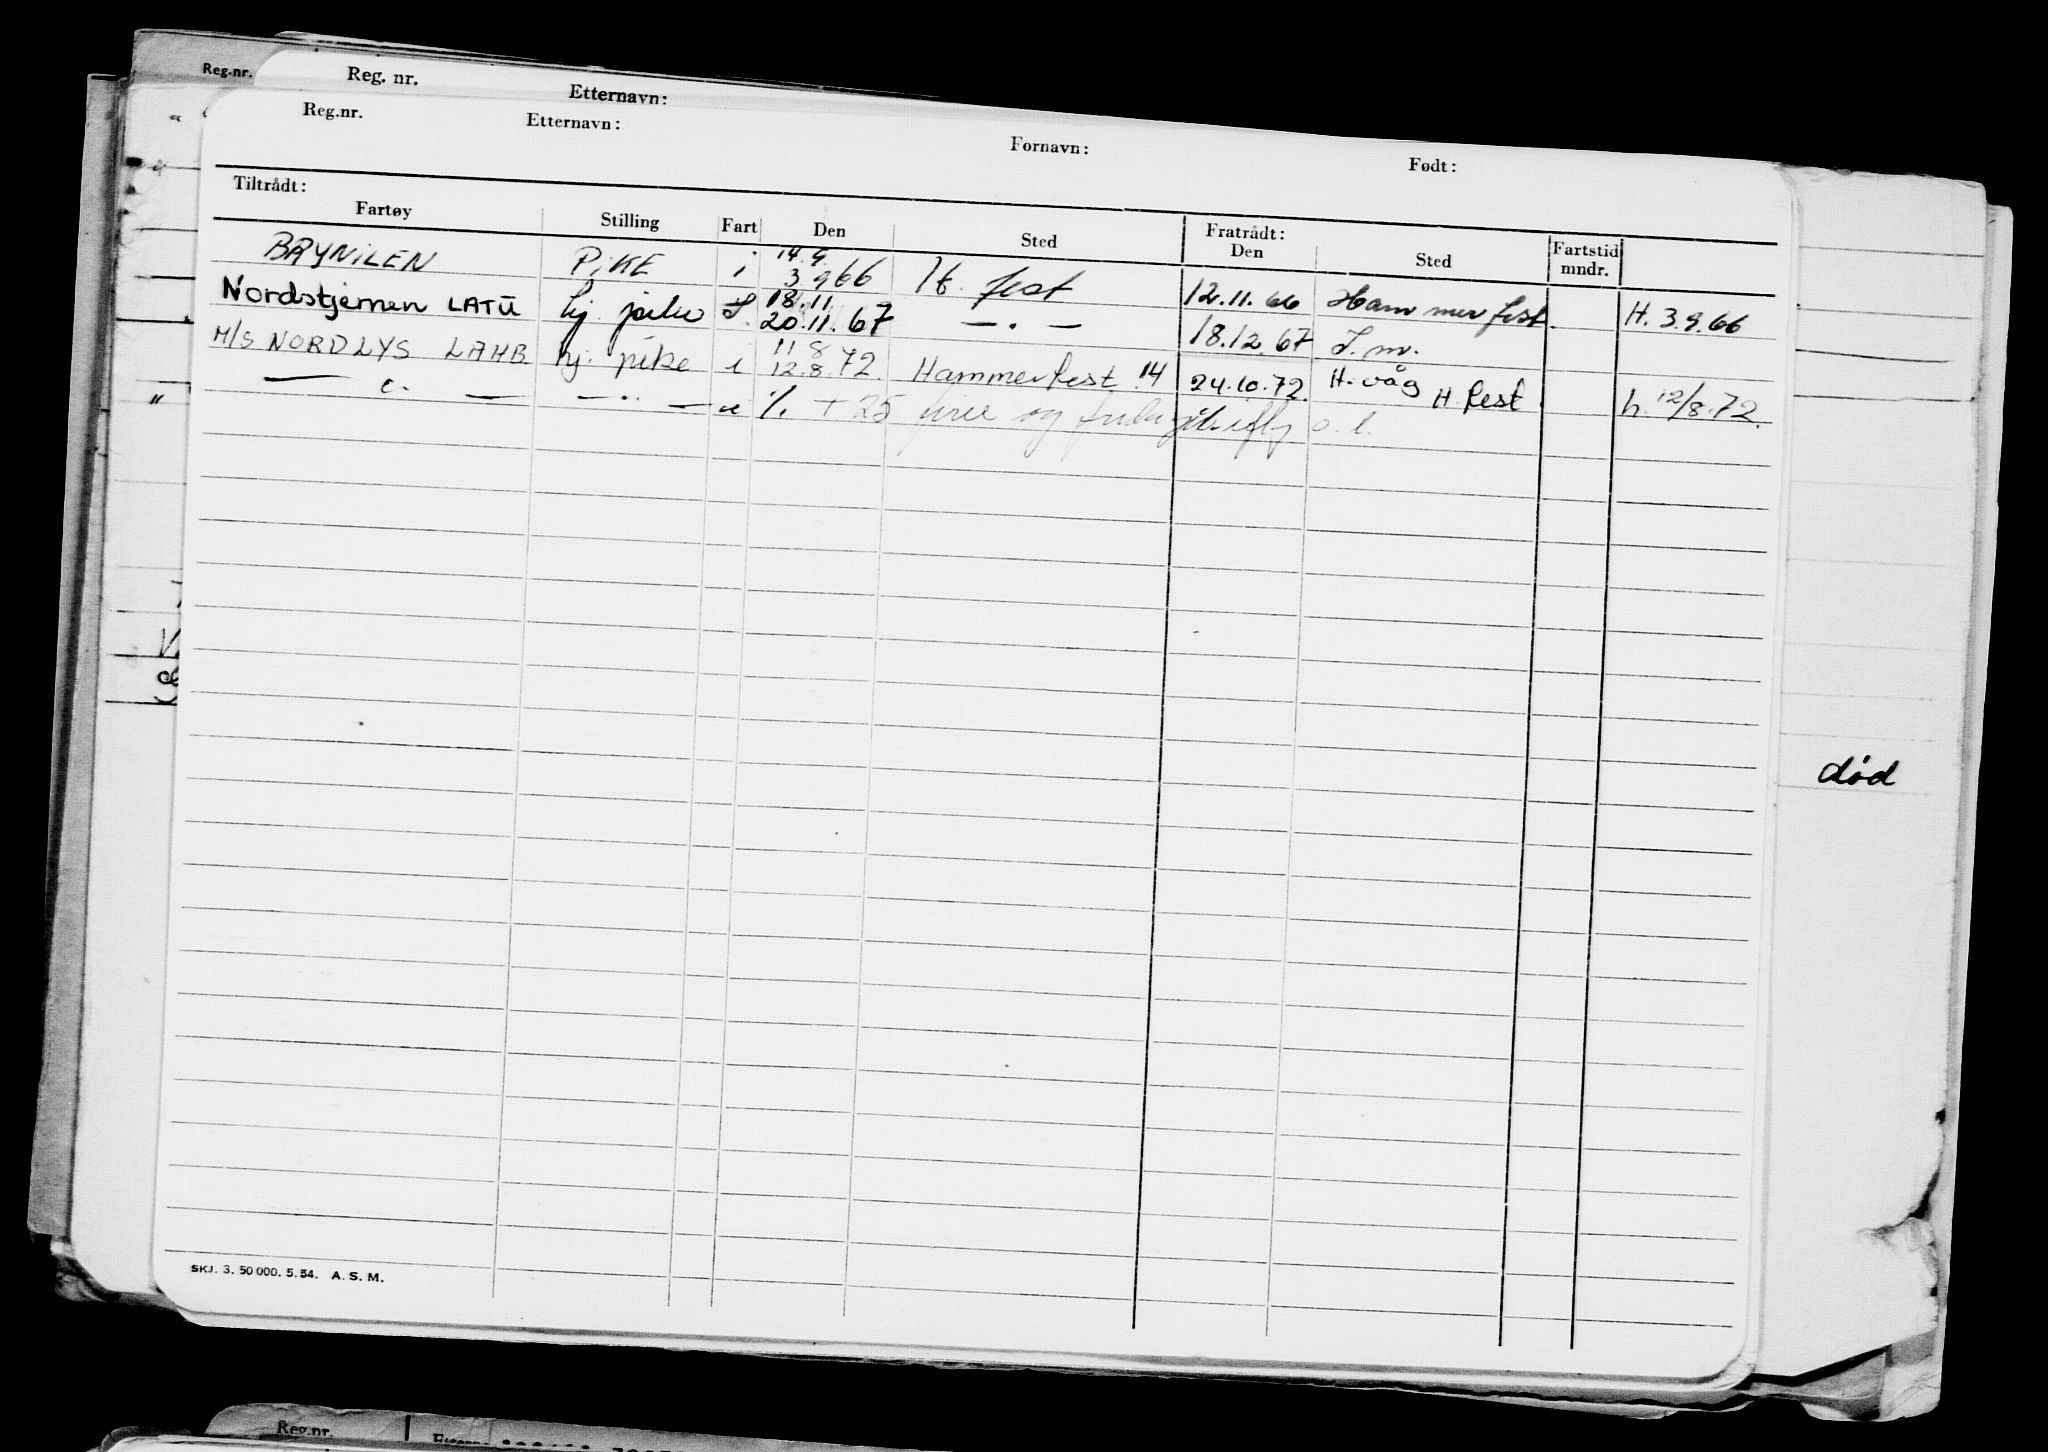 Reg.nr.
Reg. nr.
Etternavn:
Reg.nr.
Etternavn:
Fornavn:
Født:
Tiltrådt:
Fratrådt:
Fartøy Stilling Fart Den Sted Den Sted Fartstid mndr.
14.9
BRYNILEN PIKE i 3 9 66 H. fest 12.11.66 Hammerfest. H. 3.9.66
18.11.
Nordstjernen LATU hj. pike I. 20.11.67 — . — 18.12.67 I. m.
11 8
M/S NORDLYS LAHB hj. pike i 12.8.72. Hammerfest 14 24.10.72. H.våg H.fest h. 12/8.72.
— " — — " — i %. + 25 o. l.
"
død
SKJ. 3. 50 000. 5. 54. A. S. M.
Reg.nr.